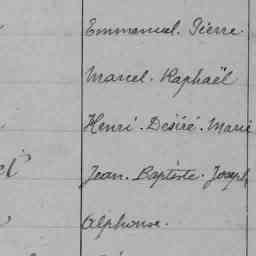 Emmanuel. Pierre.
Marcel. Raphaël
Henri. Désiré. Marie
Jean. Baptiste. Joseph
Alphonse.